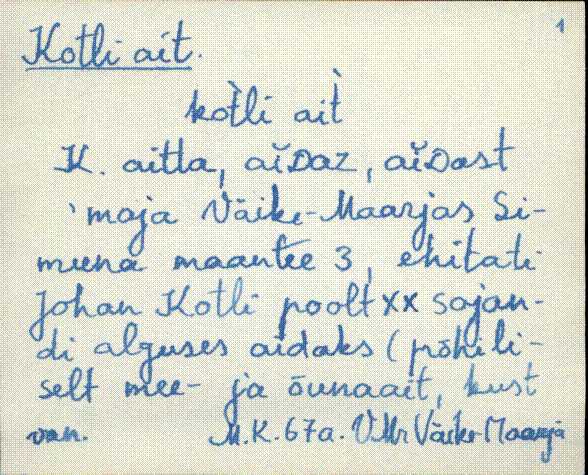 1
Kotli ait.
kot̀li ait̀
K. aitla, aĭDaz, aĭDast
'maja Väike-Maarjas Si-
muna maantee 3, ehitati
Johan Kotli poolt XX sajan-
di alguses aidaks (põhili-
selt mee- ja õunaait, kust
van. M.K. 67a. VMr Väike-Maarja